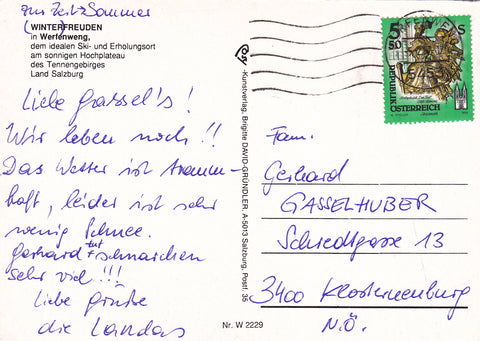 zur Zeit: Sommer
(WINTERFREUDEN)
in Werfenweng,
dem idealen Ski- und Erholungsort
am sonnigen Hochplateau
des Tennengebirges
Land Salzburg
Liebe Gassel's!
Wir leben noch!!
Das Wetter ist traum-
haft, leider ist sehr
wenig Schnee.
Gerhard tut schnarchen
sehr viel!!!
Liebe Grüße
die Landas
-Kunstverlag, Brigitte DAVID-GRÜNDLER, A-5013 Salzburg, Postf. 35
Nr. W 2229
5 S
50
REPUBLIK
ÖSTERREICH
Fam.
Gerhard
GASSELHUBER
Schredtgasse 13
3400 Klosterneuburg
N.Ö.